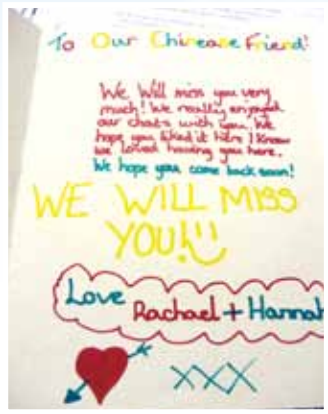 To Our Chinease Friend!
We Will miss you very
much! We really enjoyed
our chats with you. We
hope you liked it here I know
we loved having you here.
We hope you come back soon!
WE WILL MISS
YOU!
Love
Rachael + Hannah
XXX